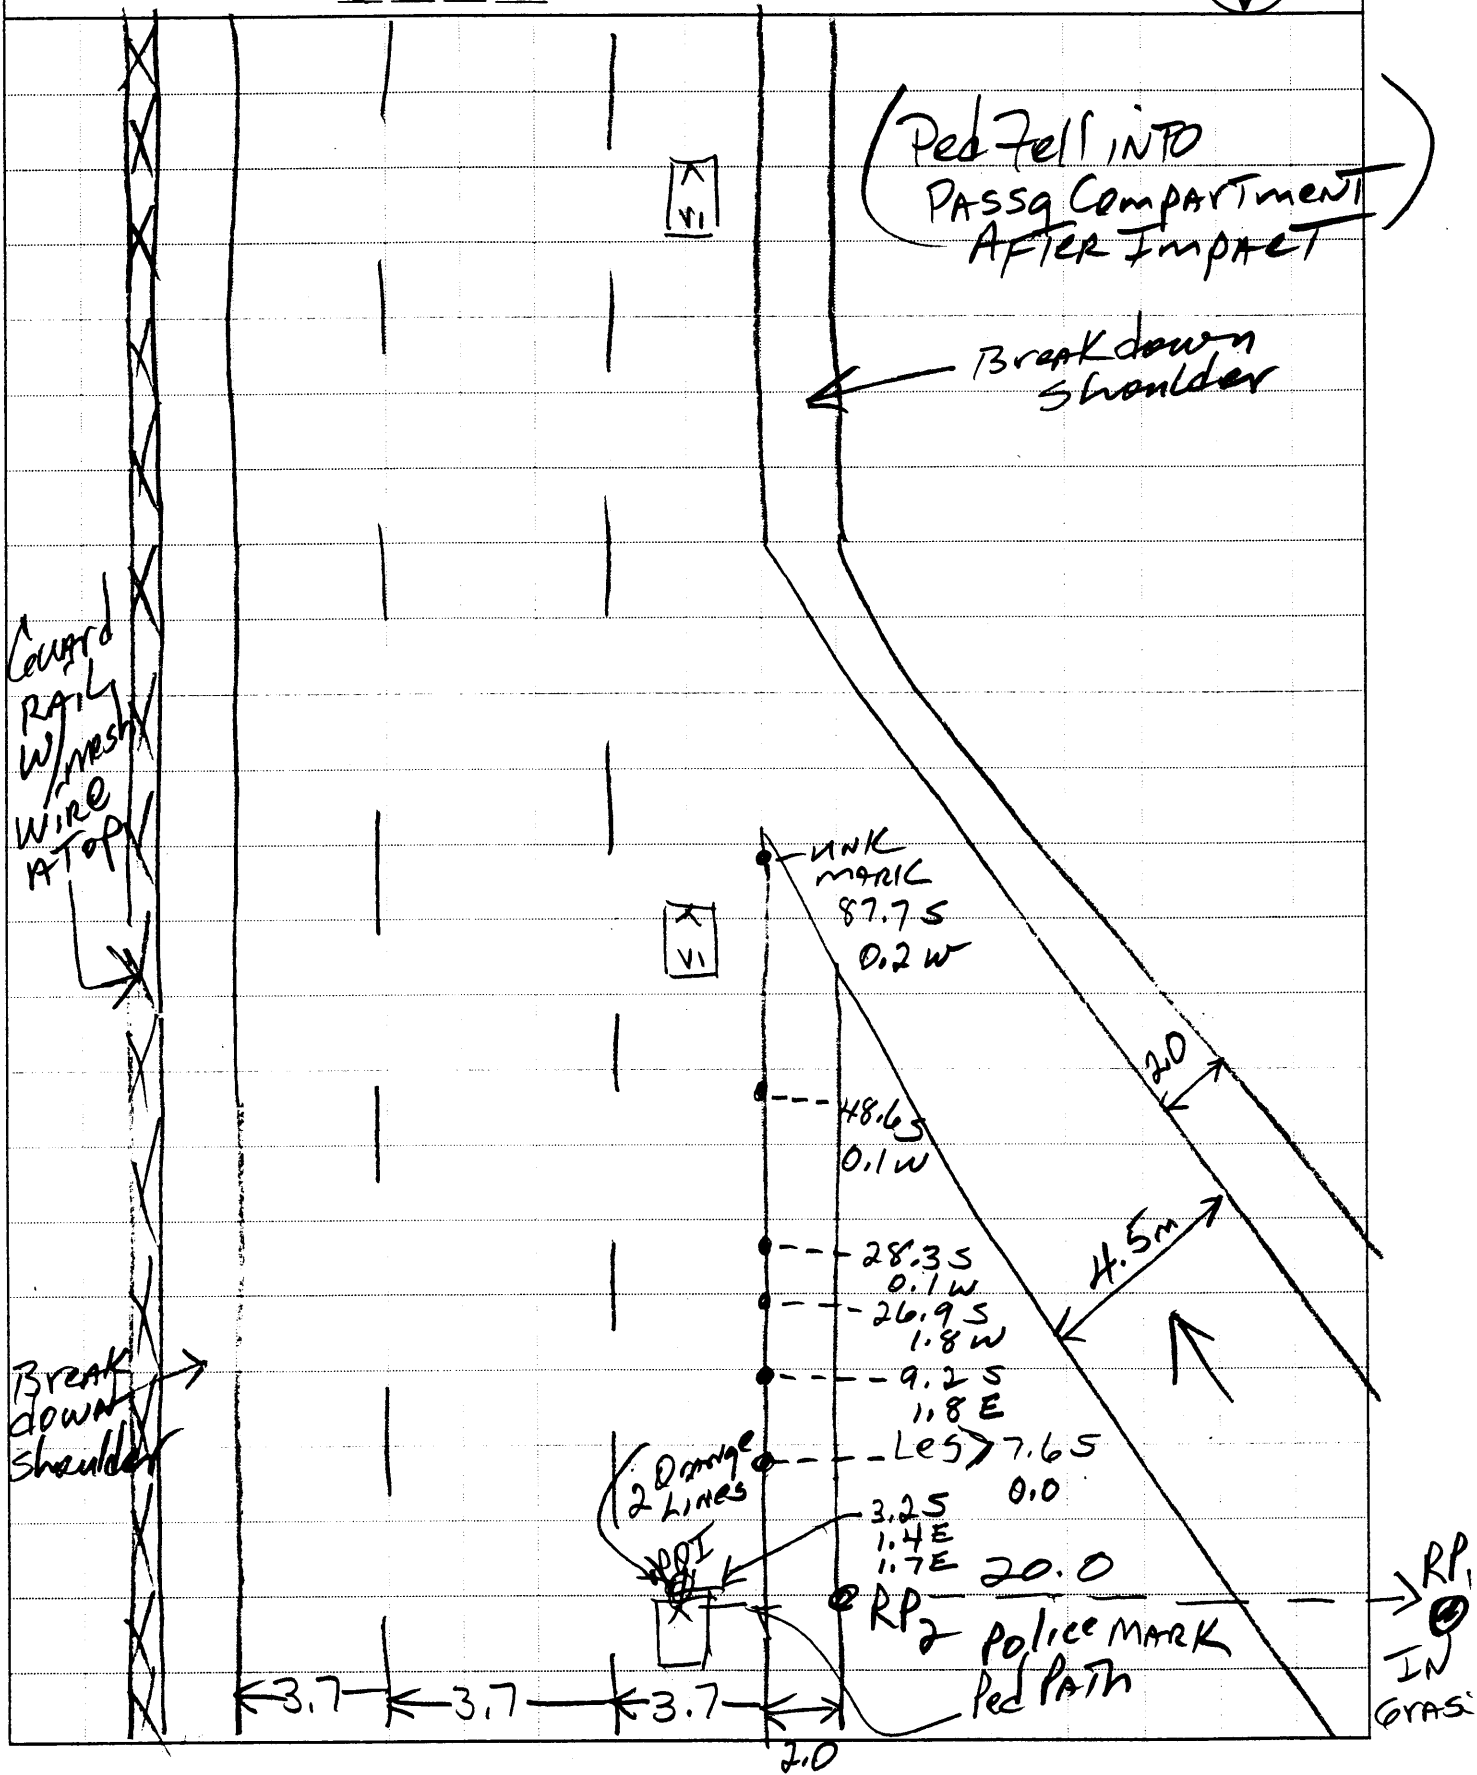 Ped Fell INTO
PASSG COMPARTMENT
AFTER IMPACT
V1
Breakdown
shoulder
Guard
RAIL
W/mesh
WIRE
ATOP
UNK
MARK
87.7 S
0.2 W
V1
2.0
48.6 S
0.1 W
28.3 S
0.1 W
26.9 S
1.8 W
4.5m
9.2 S
1.8 E
Break
down
shoulder
Leg > 7.6 S
0.0
2 Orange
Lines
POI
3.2 S
1.4 E
1.7 E
20.0
RP1
IN
Grass
RP2
Police MARK
Ped PATH
3.7
3.7
3.7
2.0